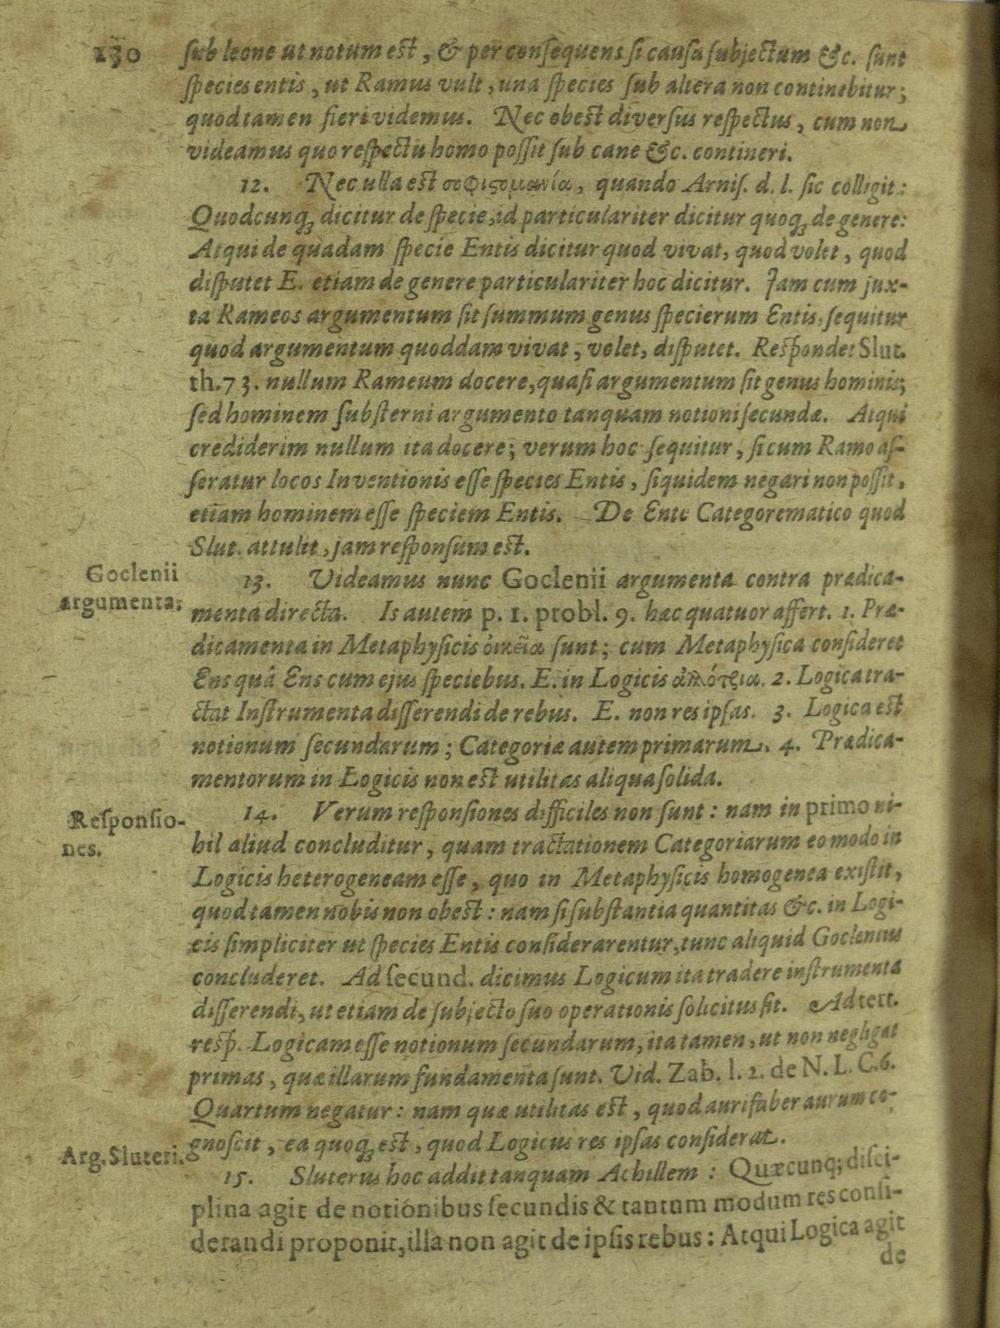 130
sub leone ut notum est, & per consequens si causa subjectum &c. sunt
species entis, ut Ramus vult, una species sub altera non continebitur;
quod tamen fieri videmus. Nec obest diversus respectus, cum non
videamus quo respectu homo possit sub cane &c. contineri.
12. Nec ulla est σοφιστομανία, quando Arnis. d. l. sic colligit:
Quodcunq; dicitur de specie, id particulariter dicitur quoq; de genere:
Atqui de quadam specie Entis dicitur quod vivat, quod volet, quod
disputet E. etiam de genere particulariter hoc dicitur. Jam cum jux-
ta Rameos argumentum sit summum genus specierum Entis, sequitur
quod argumentum quoddam vivat, volet, disputet. Respondet Slut.
th. 73. nullum Rameum docere, quasi argumentum sit genus hominis;
sed hominem substerni argumento tanquam notioni secundæ. Atqui
crediderim nullum ita docere; verum hoc sequitur, si cum Ramo as-
seratur locos Inventionis esse species Entis, siquidem negari non possit,
etiam hominem esse speciem Entis. De Ente Categorematico quod
Slut. attulit, jam responsum est.
Goclenii
argumenta;
13. Videamus nunc Goclenii argumenta contra prædica-
menta directa. Is autem p. 1. probl. 9. hæc quatuor affert. 1. Præ-
dicamenta in Metaphysicis οἰκεῖα sunt; cum Metaphysica consideret
Ens quâ Ens cum ejus speciebus. E. in Logicis ἀλλότρια. 2. Logica tra-
ctat Instrumenta disserendi de rebus. E. non res ipsas. 3. Logica est
notionum secundarum; Categoriæ autem primarum. 4. Prædica-
mentorum in Logicis non est utilitas aliqua solida.
Responsio-
nes.
14. Verum responsiones difficiles non sunt: nam in primo ni-
hil aliud concluditur, quam tractationem Categoriarum eo modo in
Logicis heterogeneam esse, quo in Metaphysicis homogenea existit,
quod tamen nobis non obest: nam si substantia quantitas &c. in Logi-
cis simpliciter ut species Entis considerarentur, tunc aliquid Goclenius
concluderet. Ad secund. dicimus Logicum ita tradere instrumenta
disserendi, ut etiam de subjecto suo operationis solicitus sit. Ad tert.
resp. Logicam esse notionum secundarum, ita tamen, ut non negligat
primas, quæ illarum fundamenta sunt. Vid. Zab. l. 2. de N. L. C. 6.
Quartum negatur: nam quæ utilitas est, quod aurifaber aurum co-
gnoscit, ea quoq; est, quod Logicus res ipsas considerat.
Arg. Sluteri.
15. Sluterus hoc addit tanquam Achillem: Quæcunq; disci-
plina agit de notionibus secundis & tantum modum res consi-
derandi proponit, illa non agit de ipsis rebus: Atqui Logica agit
de